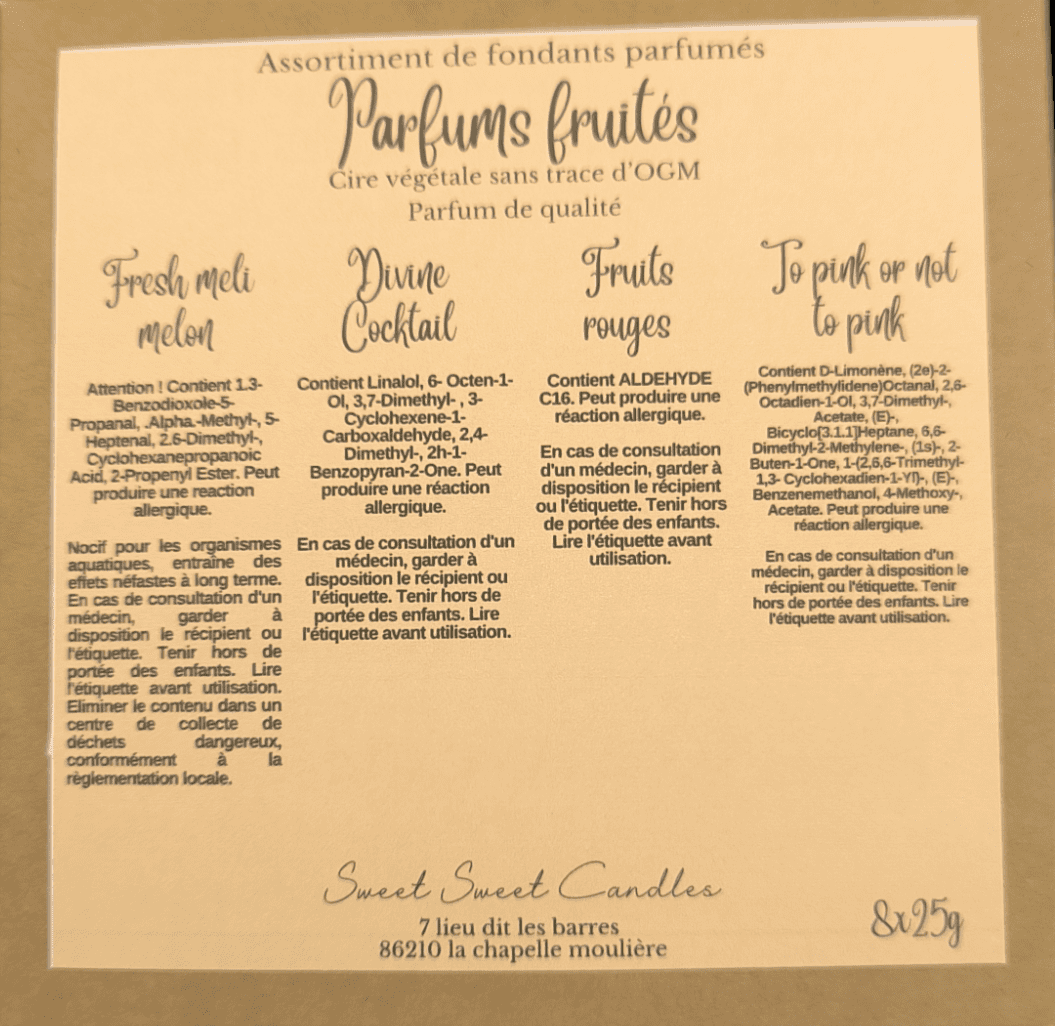 Assortiment de fondants parfumés
Parfums fruités
Cire végétale sans trace d'OGM
Parfum de qualité
Fresh meli
melon
Attention ! Contient 1.3-
Benzodioxole-5-
Propanal, .Alpha.-Methyl-, 5-
Heptenal, 2.6-Dimethyl-,
Cyclohexanepropanoic
Acid, 2-Propenyl Ester. Peut
produire une reaction
allergique.
Nocif pour les organismes
aquatiques, entraîne des
effets néfastes à long terme.
En cas de consultation d'un
médecin, garder à
disposition le récipient ou
l'étiquette. Tenir hors de
portée des enfants. Lire
l'étiquette avant utilisation.
Eliminer le contenu dans un
centre de collecte de
déchets dangereux,
conformément à la
règlementation locale.
Divine
Cocktail
Contient Linalol, 6- Octen-1-
Ol, 3,7-Dimethyl- , 3-
Cyclohexene-1-
Carboxaldehyde, 2,4-
Dimethyl-, 2h-1-
Benzopyran-2-One. Peut
produire une réaction
allergique.
En cas de consultation d'un
médecin, garder à
disposition le récipient ou
l'étiquette. Tenir hors de
portée des enfants. Lire
l'étiquette avant utilisation.
Fruits
rouges
Contient ALDEHYDE
C16. Peut produire une
réaction allergique.
En cas de consultation
d'un médecin, garder à
disposition le récipient
ou l'étiquette. Tenir hors
de portée des enfants.
Lire l'étiquette avant
utilisation.
To pink or not
to pink
Contient D-Limonène, (2e)-2-
(Phenylmethylidene)Octanal, 2,6-
Octadien-1-Ol, 3,7-Dimethyl-,
Acetate, (E)-,
Bicyclo[3.1.1]Heptane, 6,6-
Dimethyl-2-Methylene-, (1s)-, 2-
Buten-1-One, 1-(2,6,6-Trimethyl-
1,3- Cyclohexadien-1-Yl)-, (E)-,
Benzenemethanol, 4-Methoxy-,
Acetate. Peut produire une
réaction allergique.
En cas de consultation d'un
médecin, garder à disposition le
récipient ou l'étiquette. Tenir
hors de portée des enfants. Lire
l'étiquette avant utilisation.
Sweet Sweet Candles
7 lieu dit les barres
86210 la chapelle moulière
8x25g